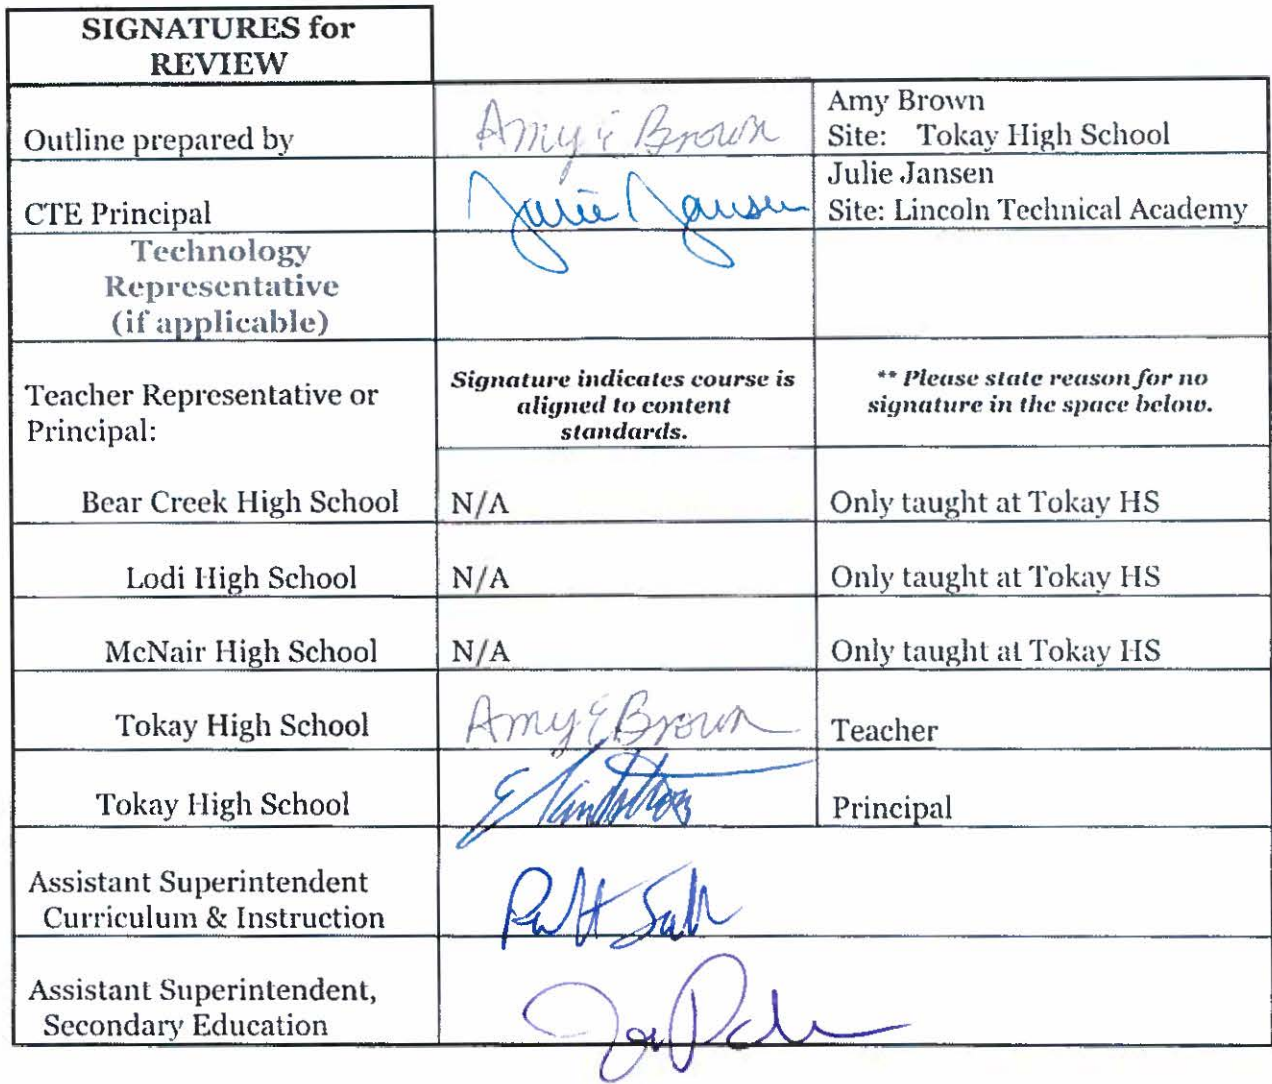 SIGNATURES for
REVIEW
Outline prepared by
Amy E Brown
Amy Brown
Site: Tokay High School
CTE Principal
Julie Jansen
Julie Jansen
Site: Lincoln Technical Academy
Technology
Representative
(if applicable)
Teacher Representative or
Principal:
Signature indicates course is
aligned to content
standards.
** Please state reason for no
signature in the space below.
Bear Creek High School
N/A
Only taught at Tokay HS
Lodi High School
N/A
Only taught at Tokay HS
McNair High School
N/A
Only taught at Tokay HS
Tokay High School
Amy E Brown
Teacher
Tokay High School
Principal
Assistant Superintendent
Curriculum & Instruction
Assistant Superintendent,
Secondary Education